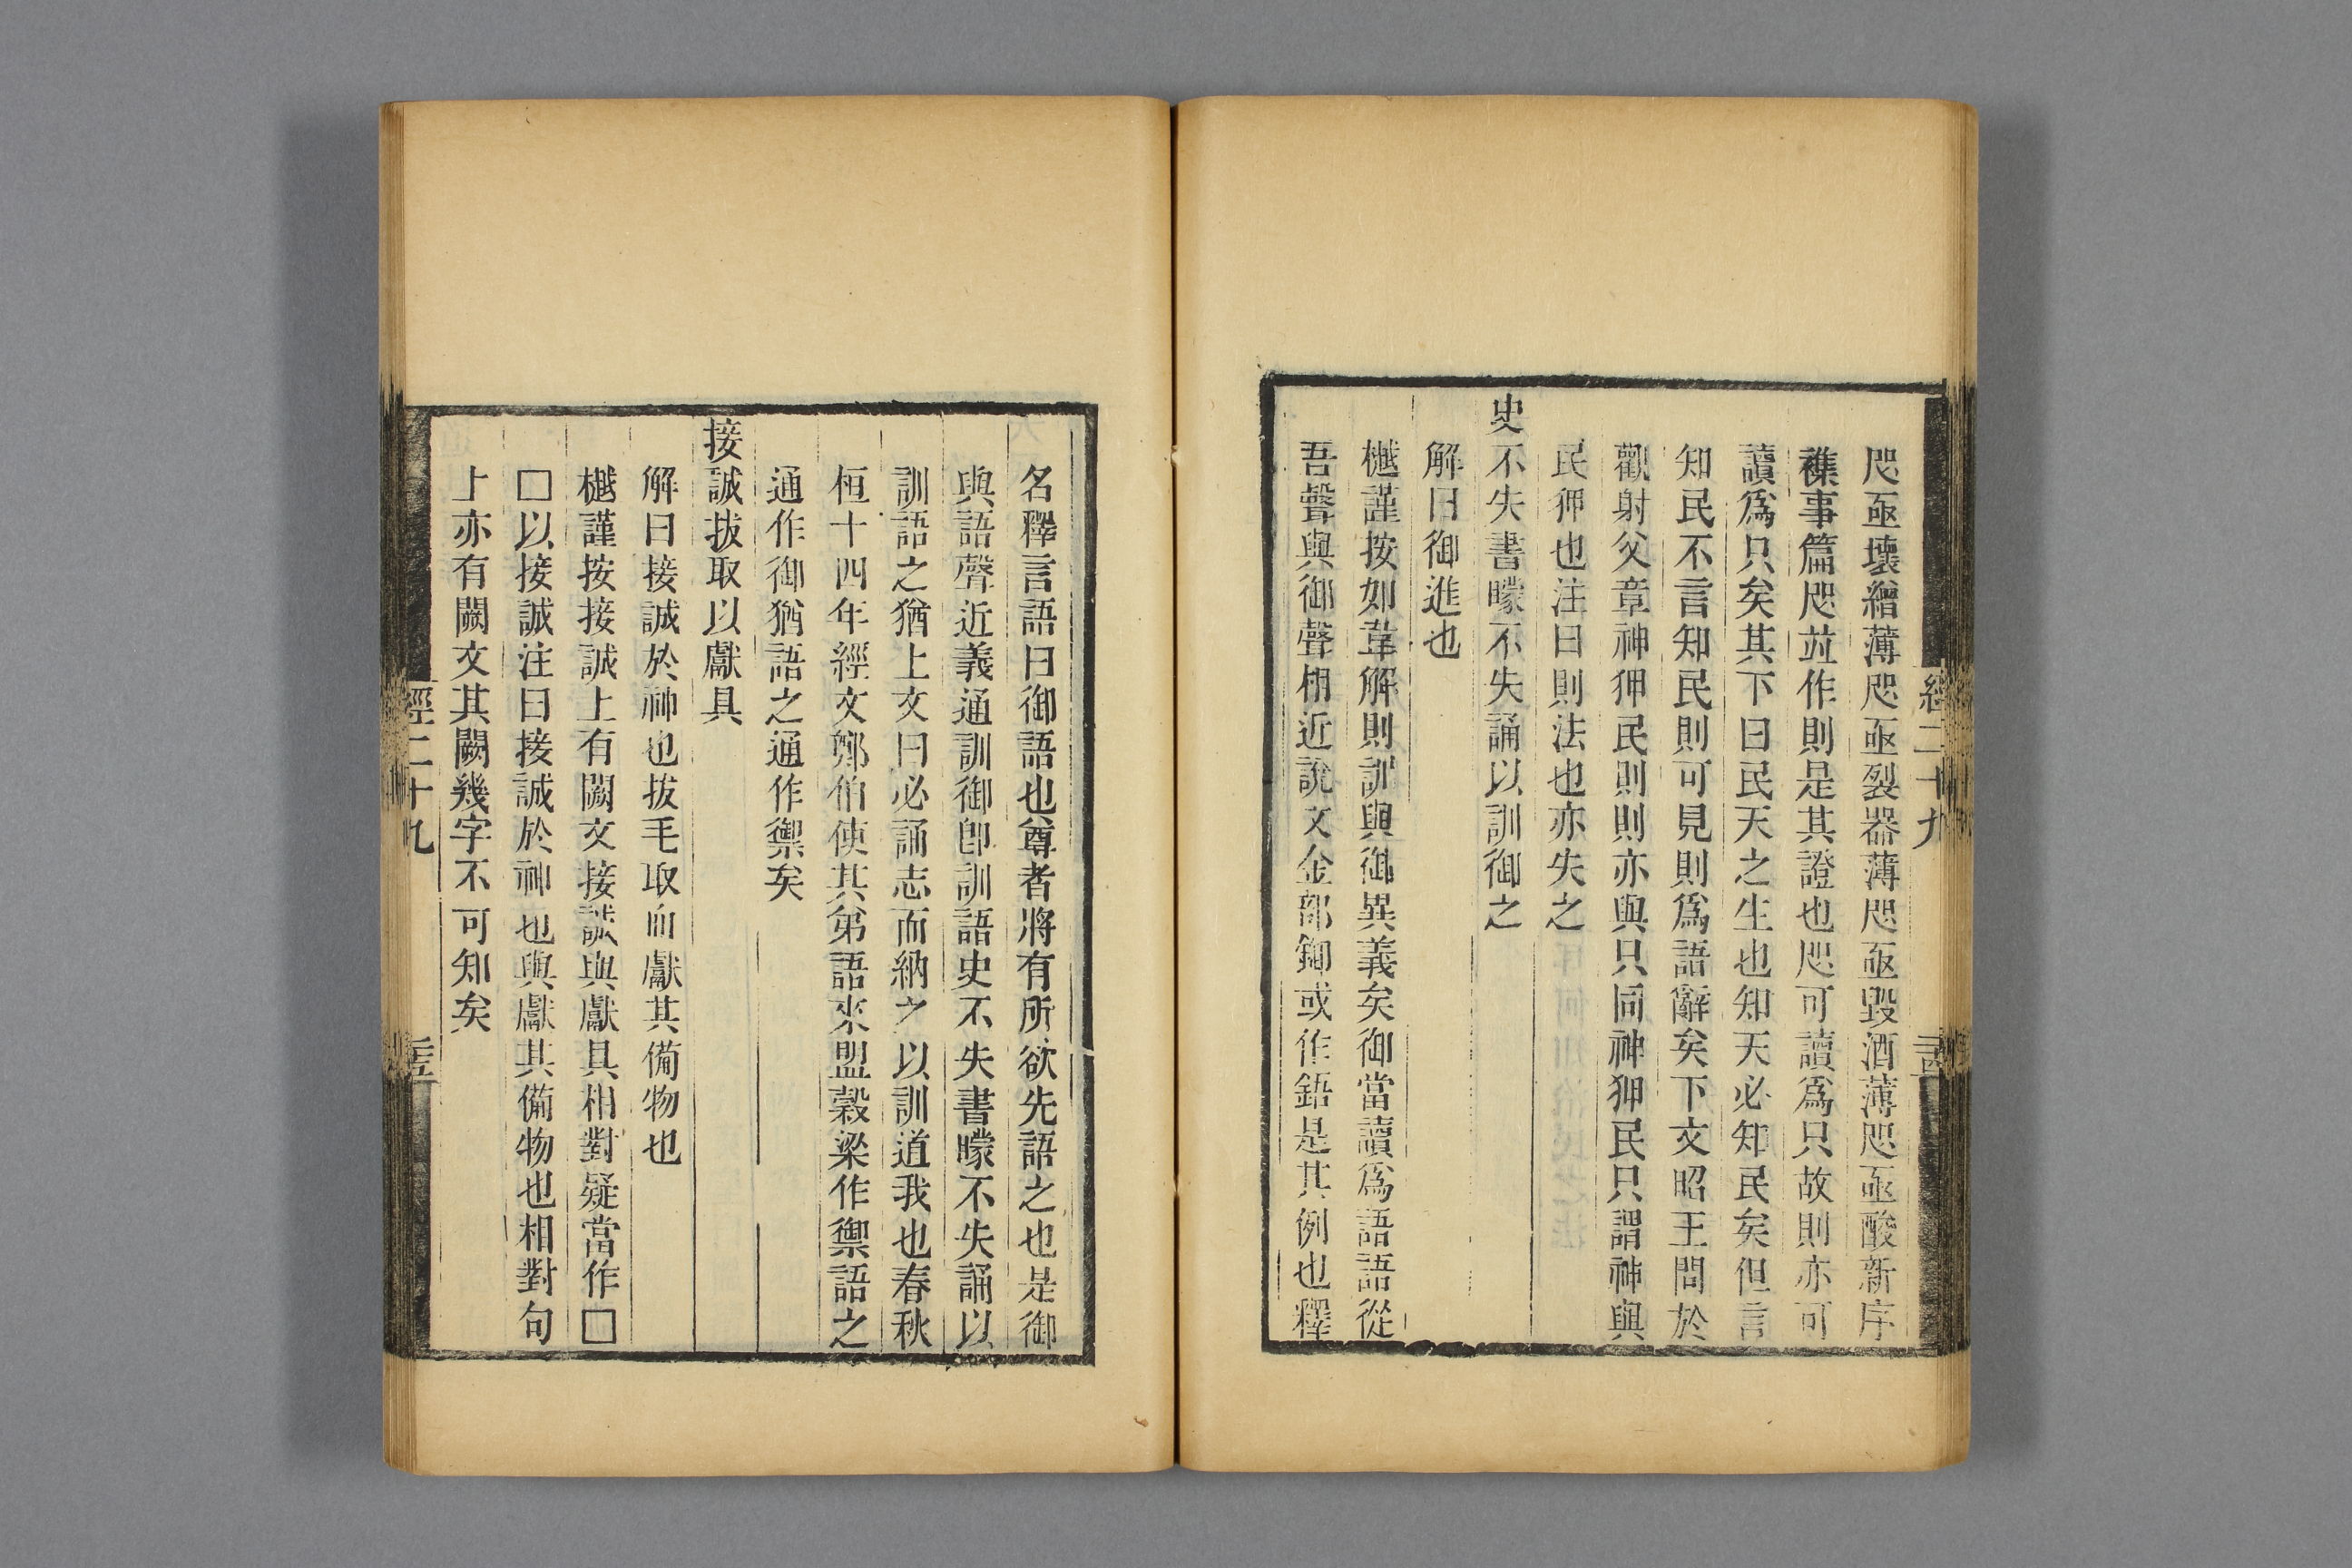 咫亟壞繒薄咫亟裂器薄咫亟毀酒薄咫亟酸新序
襍事篇咫竝作則是其證也咫可讀爲只故則亦可
讀爲只矣其下曰民天之生也知天必知民矣但言
知民不言知民則可見則爲語辭矣下文昭王問於
觀射父章神狎民則則亦與只同神狎民只謂神與
民狎也注曰則法也亦失之
史不失書矇不失誦以訓御之
解曰御進也
樾謹按如韋解則訓與御異義矣御當讀爲語語從
吾聲與御聲相近說文金部鋙或作鋙是其例也釋
經二十九
名釋言語曰御語也尊者將有所欲先語之也是御
與語聲近義通訓御卽訓語史不失書矇不失誦以
訓語之猶上文曰必誦志而納之以訓道我也春秋
桓十四年經文鄭伯使其弟語來盟穀梁作禦語之
通作御猶語之通作禦矣
接誠拔取以獻具
解曰接誠於神也拔毛取血獻其備物也
樾謹按接誠上有闕文接誠與獻具相對疑當作□
□以接誠注曰接誠於神也與獻其備物也相對句
上亦有闕文其闕幾字不可知矣
經二十九